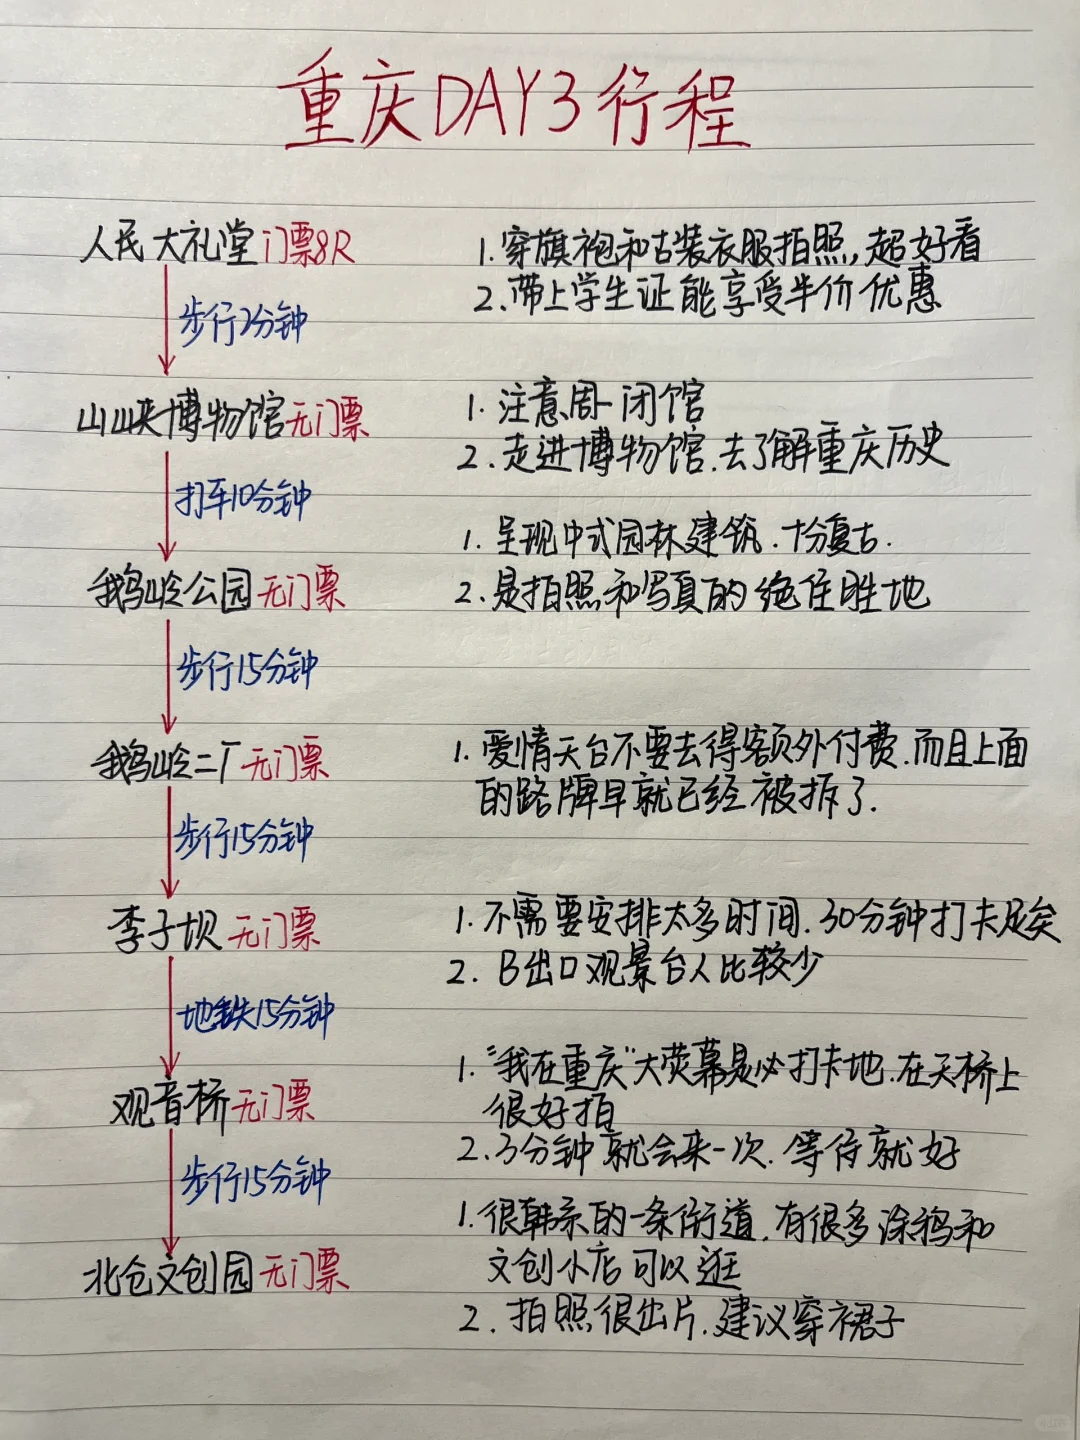 重庆DAY3行程
人民大礼堂门票8R
1. 穿旗袍和古装衣服拍照,超好看
2. 带上学生证能享受半价优惠
步行2分钟
山峡博物馆无门票
1. 注意周一闭馆
2. 走进博物馆.去了解重庆历史
打车10分钟
1. 呈现中式园林建筑.十分复古.
鹅岭公园无门票
2. 是拍照和写真的绝佳胜地
步行15分钟
鹅岭二厂无门票
1. 爱情天台不要去得额外付费.而且上面
的路牌早就已经被拆了.
步行15分钟
李子坝无门票
1. 不需要安排太多时间.30分钟打卡足矣
2. B出口观景台人比较少
地铁15分钟
1. "我在重庆"大荧幕是必打卡地.在天桥上
很好拍
观音桥无门票
2. 3分钟就会来一次.等待就好
步行15分钟
1. 很韩系的一条街道.有很多涂鸦和
文创小店可以逛
北仓文创园无门票
2. 拍照很出片.建议穿裙子